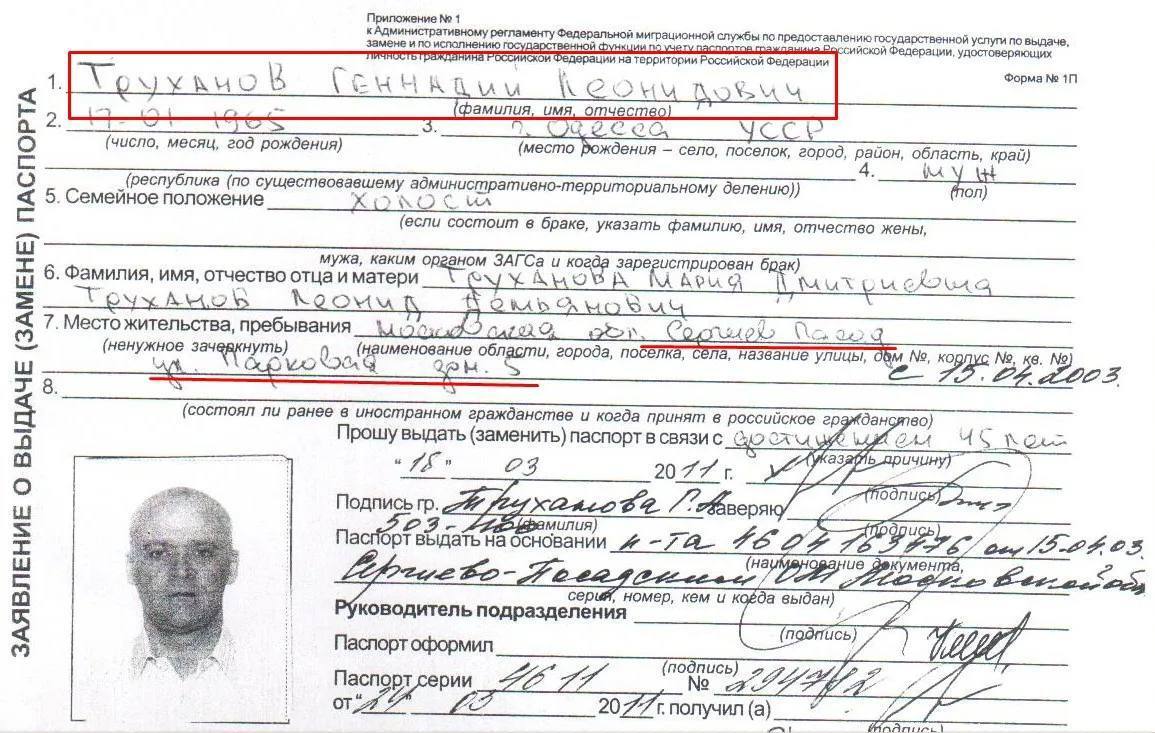 Приложение № 1
к Административному регламенту Федеральной миграционной службы по предоставлению государственной услуги по выдаче,
замене и по исполнению государственной функции по учету паспортов гражданина Российской Федерации, удостоверяющих
личность гражданина Российской Федерации на территории Российской Федерации
Форма № 1П
ЗАЯВЛЕНИЕ О ВЫДАЧЕ (ЗАМЕНЕ) ПАСПОРТА
1. Труханов Геннадий Леонидович
(фамилия, имя, отчество)
2. 17-01 1965 3. г. Одесса УССР
(число, месяц, год рождения) (место рождения – село, поселок, город, район, область, край)
4. муж
(республика (по существовавшему административно-территориальному делению)) (пол)
5. Семейное положение холост
(если состоит в браке, указать фамилию, имя, отчество жены,
мужа, каким органом ЗАГСа и когда зарегистрирован брак)
6. Фамилия, имя, отчество отца и матери Труханова Мария Дмитриевна
Труханов Леонид Демьянович
7. Место жительства, пребывания Московская обл. Сергиев Пасад
(ненужное зачеркнуть) (наименование области, города, поселка, села, название улицы, дом №, корпус №, кв. №)
ул. Парковая дом. 5 с 15.04.2003.
8.
(состоял ли ранее в иностранном гражданстве и когда принят в российское гражданство)
Прошу выдать (заменить) паспорт в связи с достижением 45 лет
(указать причину)
“ 18 ” 03 2011 г.
(подпись)
Подпись гр. Труханова Г.Л. заверяю
(фамилия) (подпись)
503-
Паспорт выдать на основании п-та 46 04 163476 от 15.04.03.
(наименование документа,
Сергиево-Посадским ОМ Московской обл
серия, номер, кем и когда выдан)
Руководитель подразделения
(подпись)
Паспорт оформил
(подпись)
Паспорт серии 46 11 № 294782
от “24” 03 2011 г. получил (а)
(подпись)